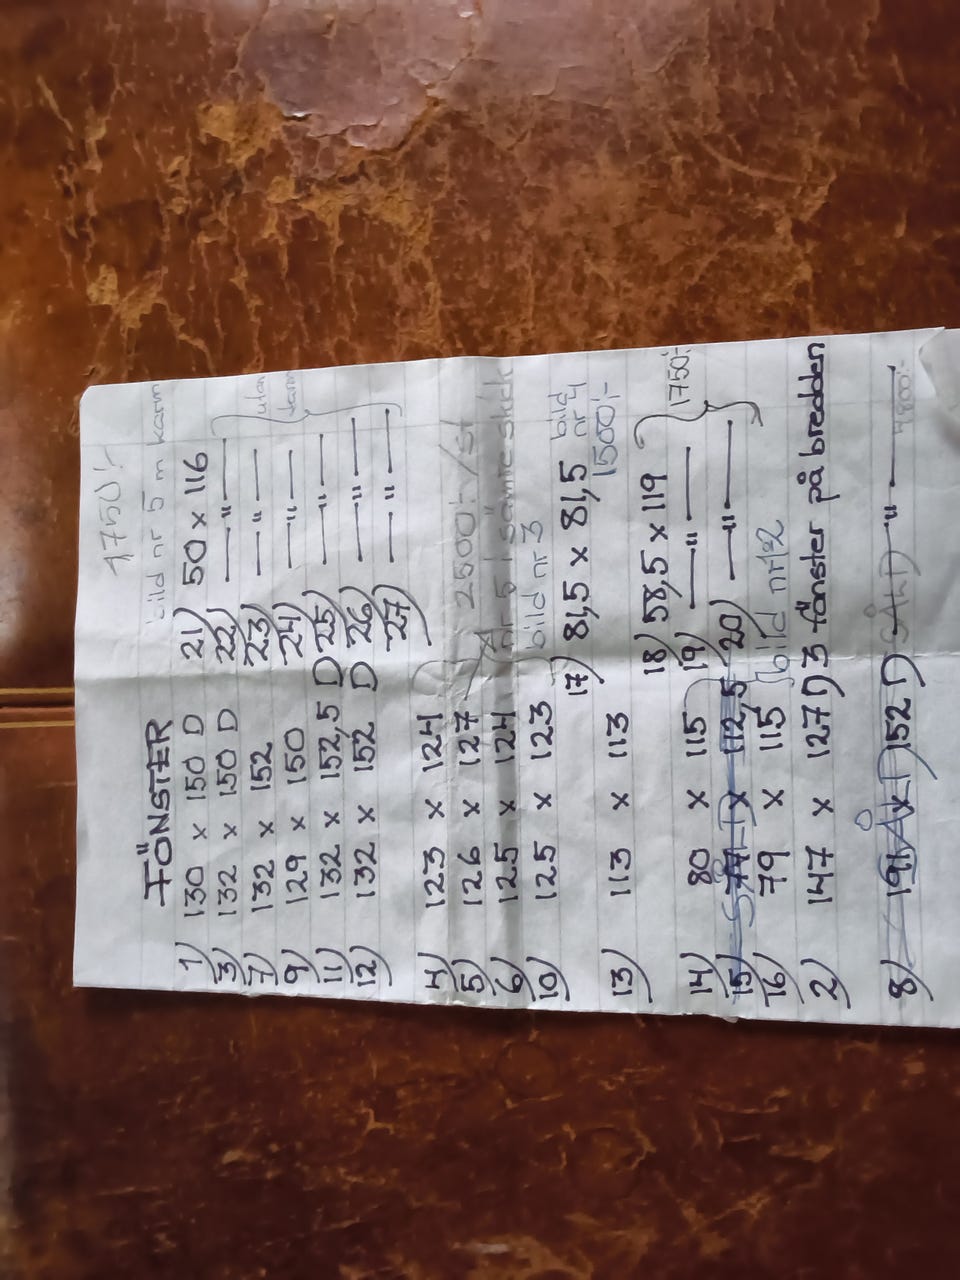 FÖNSTER
1) 130 x 150 D
3) 132 x 150 D
7) 132 x 152
9) 129 x 150
11) 132 x 152,5 D
12) 132 x 152 D
4) 123 x 124
5) 126 x 127
6) 125 x 124
10) 125 x 123
13) 113 x 113
14) 80 x 115
15) 77 x 112,5
SÅLD
16) 79 x 115
2) 147 x 127 D 3 fönster på bredden
8) 191 x 152 D —— " ——
SÅLD
SÅLD
4800:-
1750:-
bild nr 5 m karm
21) 50 x 116
22) —— " ——
23) —— " ——
24) —— " ——
25) —— " ——
26) —— " ——
27) —— " ——
utan
karm
2500:-/st
nr 5 i sämre skick
bild nr 3
17) 81,5 x 81,5
bild
nr 4
1500:-
18) 58,5 x 119
19) —— " ——
20) —— " ——
1750:-
bild nr 1+2